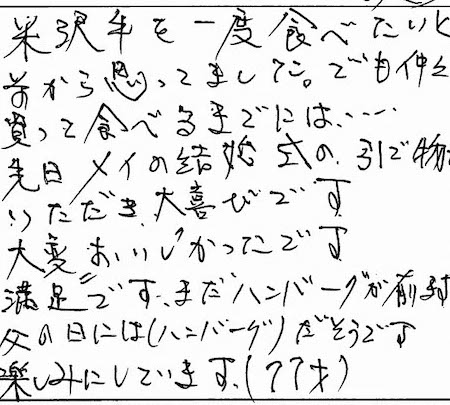 米沢牛を一度食べたいと
前から思ってました。でも仲々
買って食べるまでには、……
先日メイの結婚式の引で物
いただき、大喜びです
大変おいしかったです
満足です、まだハンバーグが
父の日には(ハンバーグ)だそうです
楽しみにしています。(77才)